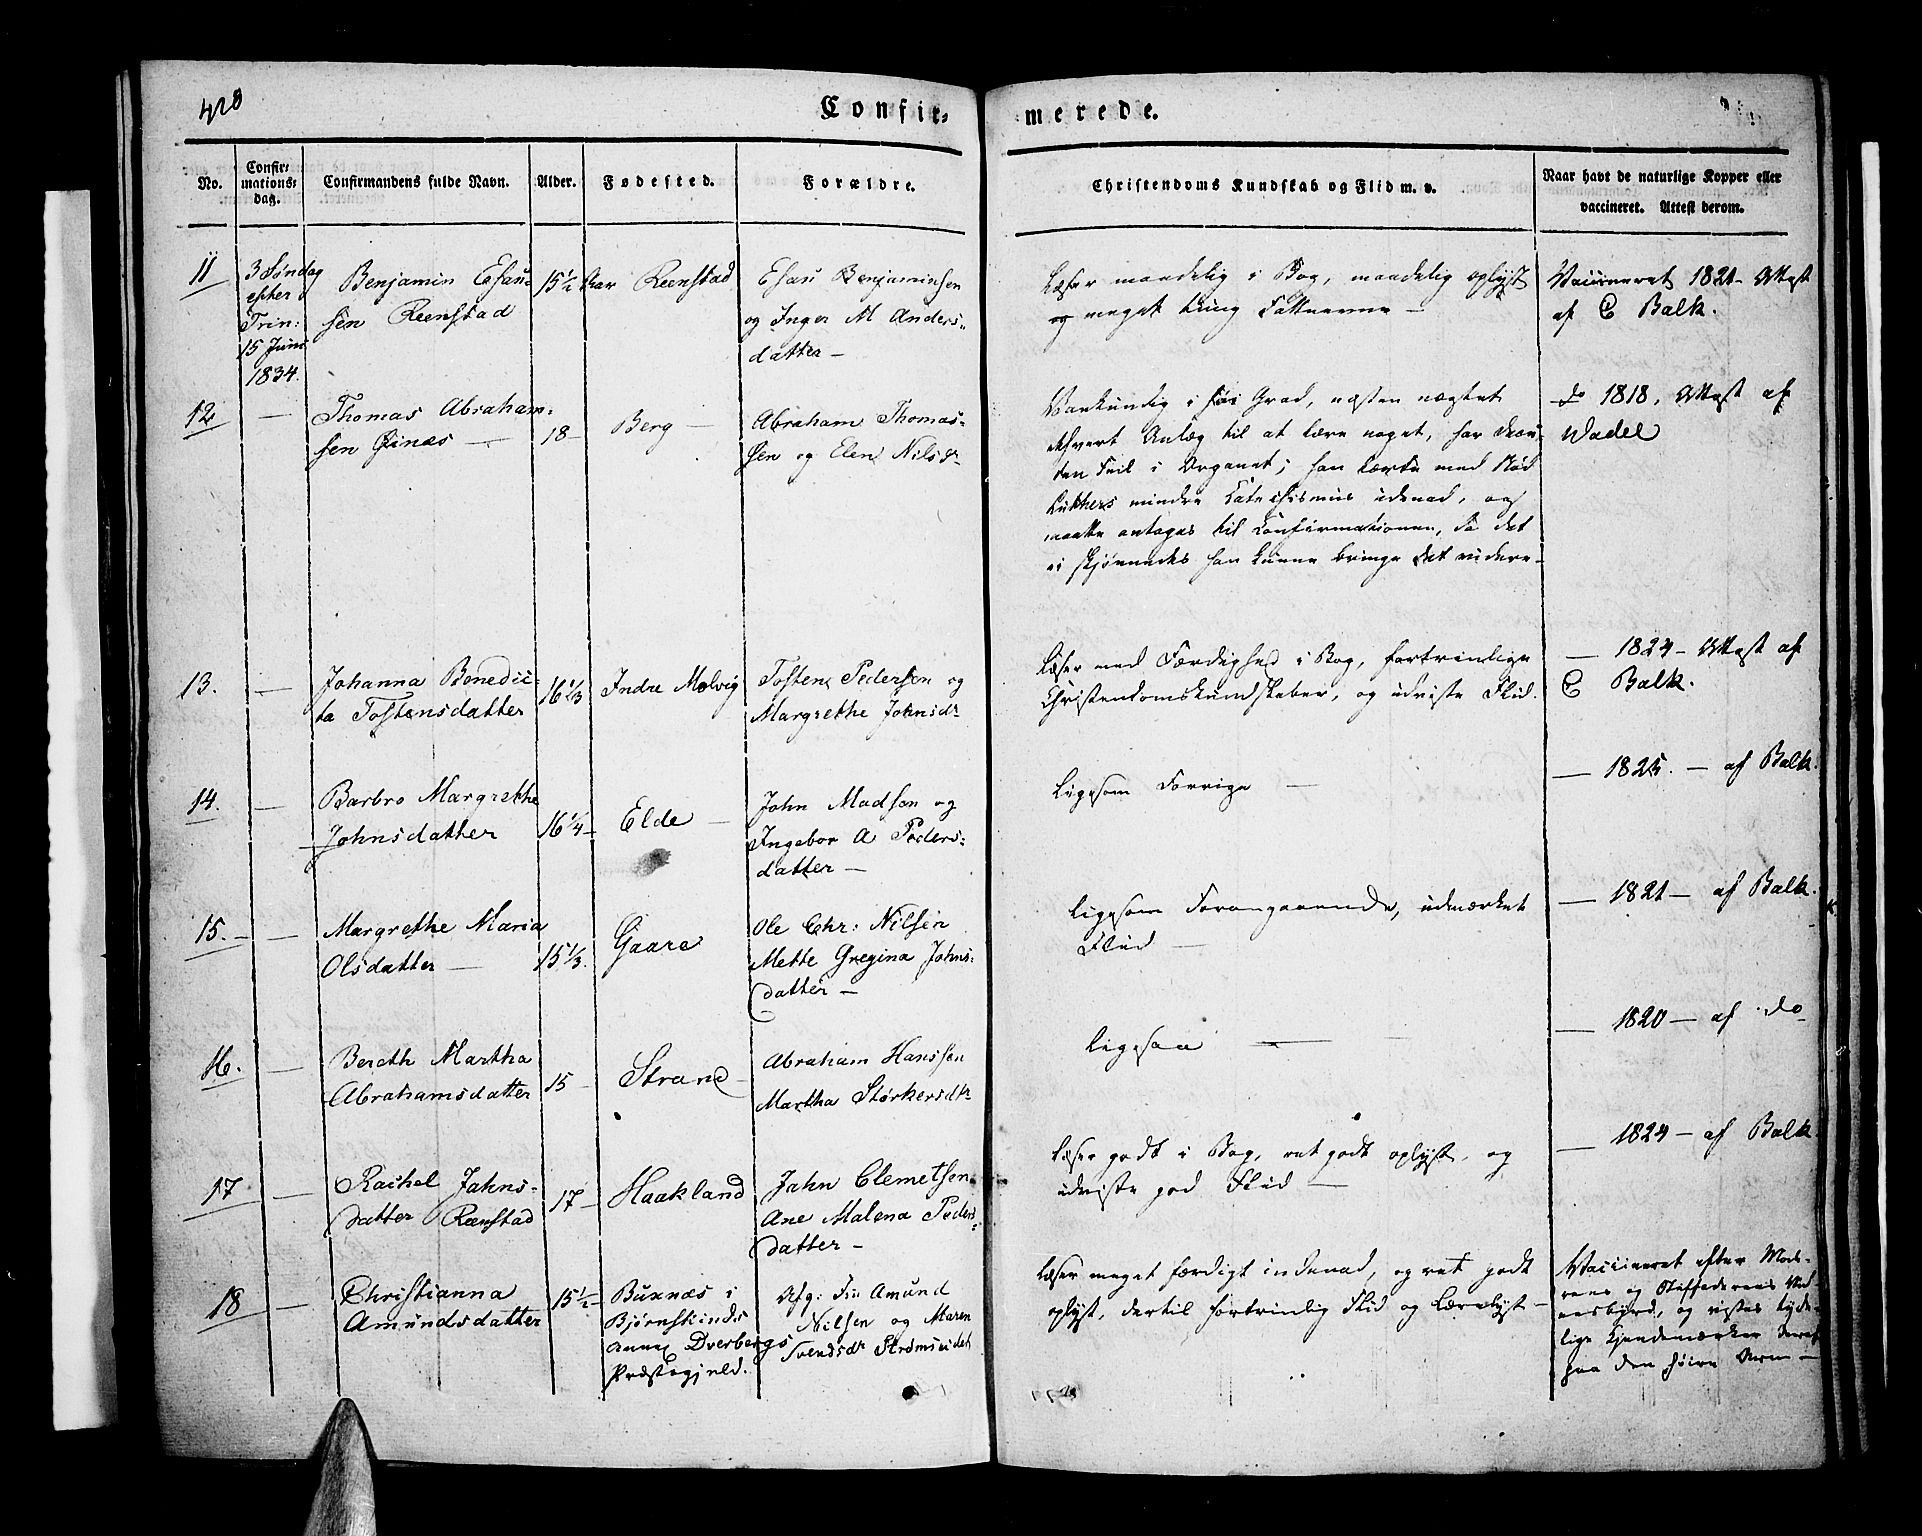 420
Confir-
merede.
No.
Confir-
mations-
dag.
Confirmandens fulde Navn.
Alder.
Fødested.
Forældre.
Christendoms Kundskab og Flid m. v.
Naar havt de naturlige Kopper eller
vaccineret. Attest derom.
11
3 Søndag
efter
Trin:
15 Juni
1834.
Benjamin Esau-
sen Reenstad
15½
Reenstad
Esau Benjaminsen
og Inger M Anders-
datter –
Læser maadelig i Bog, maadelig oplyst
og meget tung Fatteevne –
Vaccineret 1821 – Attest
af C Balk.
12
—
Thomas Abraham-
sen –
18 –
Berg –
Abraham Thomas-
sen og Elen Nilsdr
Vankundig i høi Grad, næsten nægtet
ethvert Anlæg til at lære noget, har desu-
den Feil i Organet; han lærte med Nød
Luthers mindre Catechismus udenad, og
maatte antages til Confirmationen, da det
ei skjønnedes han kunne bringe det videre –
do 1818, Attest af
Wadel
13.
—
Johanna Benedic-
ta Tostensdatter
16⅓
Indre Molvig
Tosten Pedersen og
Margrethe Johnsdr
Læser med Færdighed i Bog, fortrinlige
Christendomskundskaber, og udviste Flid.
— 1824 – Attest af
C Balk.
14.
—
Barbro Margrethe
Johnsdatter
16¼ –
Elde –
John Madsen og
Ingebor A Peders-
datter –
Ligesom Forrige –
— 1825. – af Balk.
15.
—
Margrethe Maria
Olsdatter –
15⅓.
Gaare
Ole Chr: Nilsen
Mette Gregina Johns-
datter –
Ligesom Forangaaende, udmærket
Flid –
— 1821 – af Balk.
16.
—
Bereth Martha
Abrahamsdatter
15 –
Strand –
Abraham Hanssen
Martha Størkersdtr
Ligesaa –
— 1820 – af do
17
—
Rachel Jahns-
datter Reenstad
17 –
Haakland
Jahn Clemetsen
Ane Malena Peders-
datter –
Læser godt i Bog, ret godt oplyst, og
udviste god Flid –
— 1824 – af Balk
18
—
Christianna
Amundsdatter
15½ –
Buxnæs i
Bjørnskinds
annex Dverbergs
Præstegjeld.
Afg: Amund
Nilsen og Maren
Svendsdr Strømsnidet
Læser meget færdigt indenad, og ret godt
oplyst, dertil fortrinlig Flid og Lærelyst –
Vaccineret efter Mod-
rens og Stiffaderens
og vistes tyde-
lige Kjendemærker deraf
paa den høire Arm –